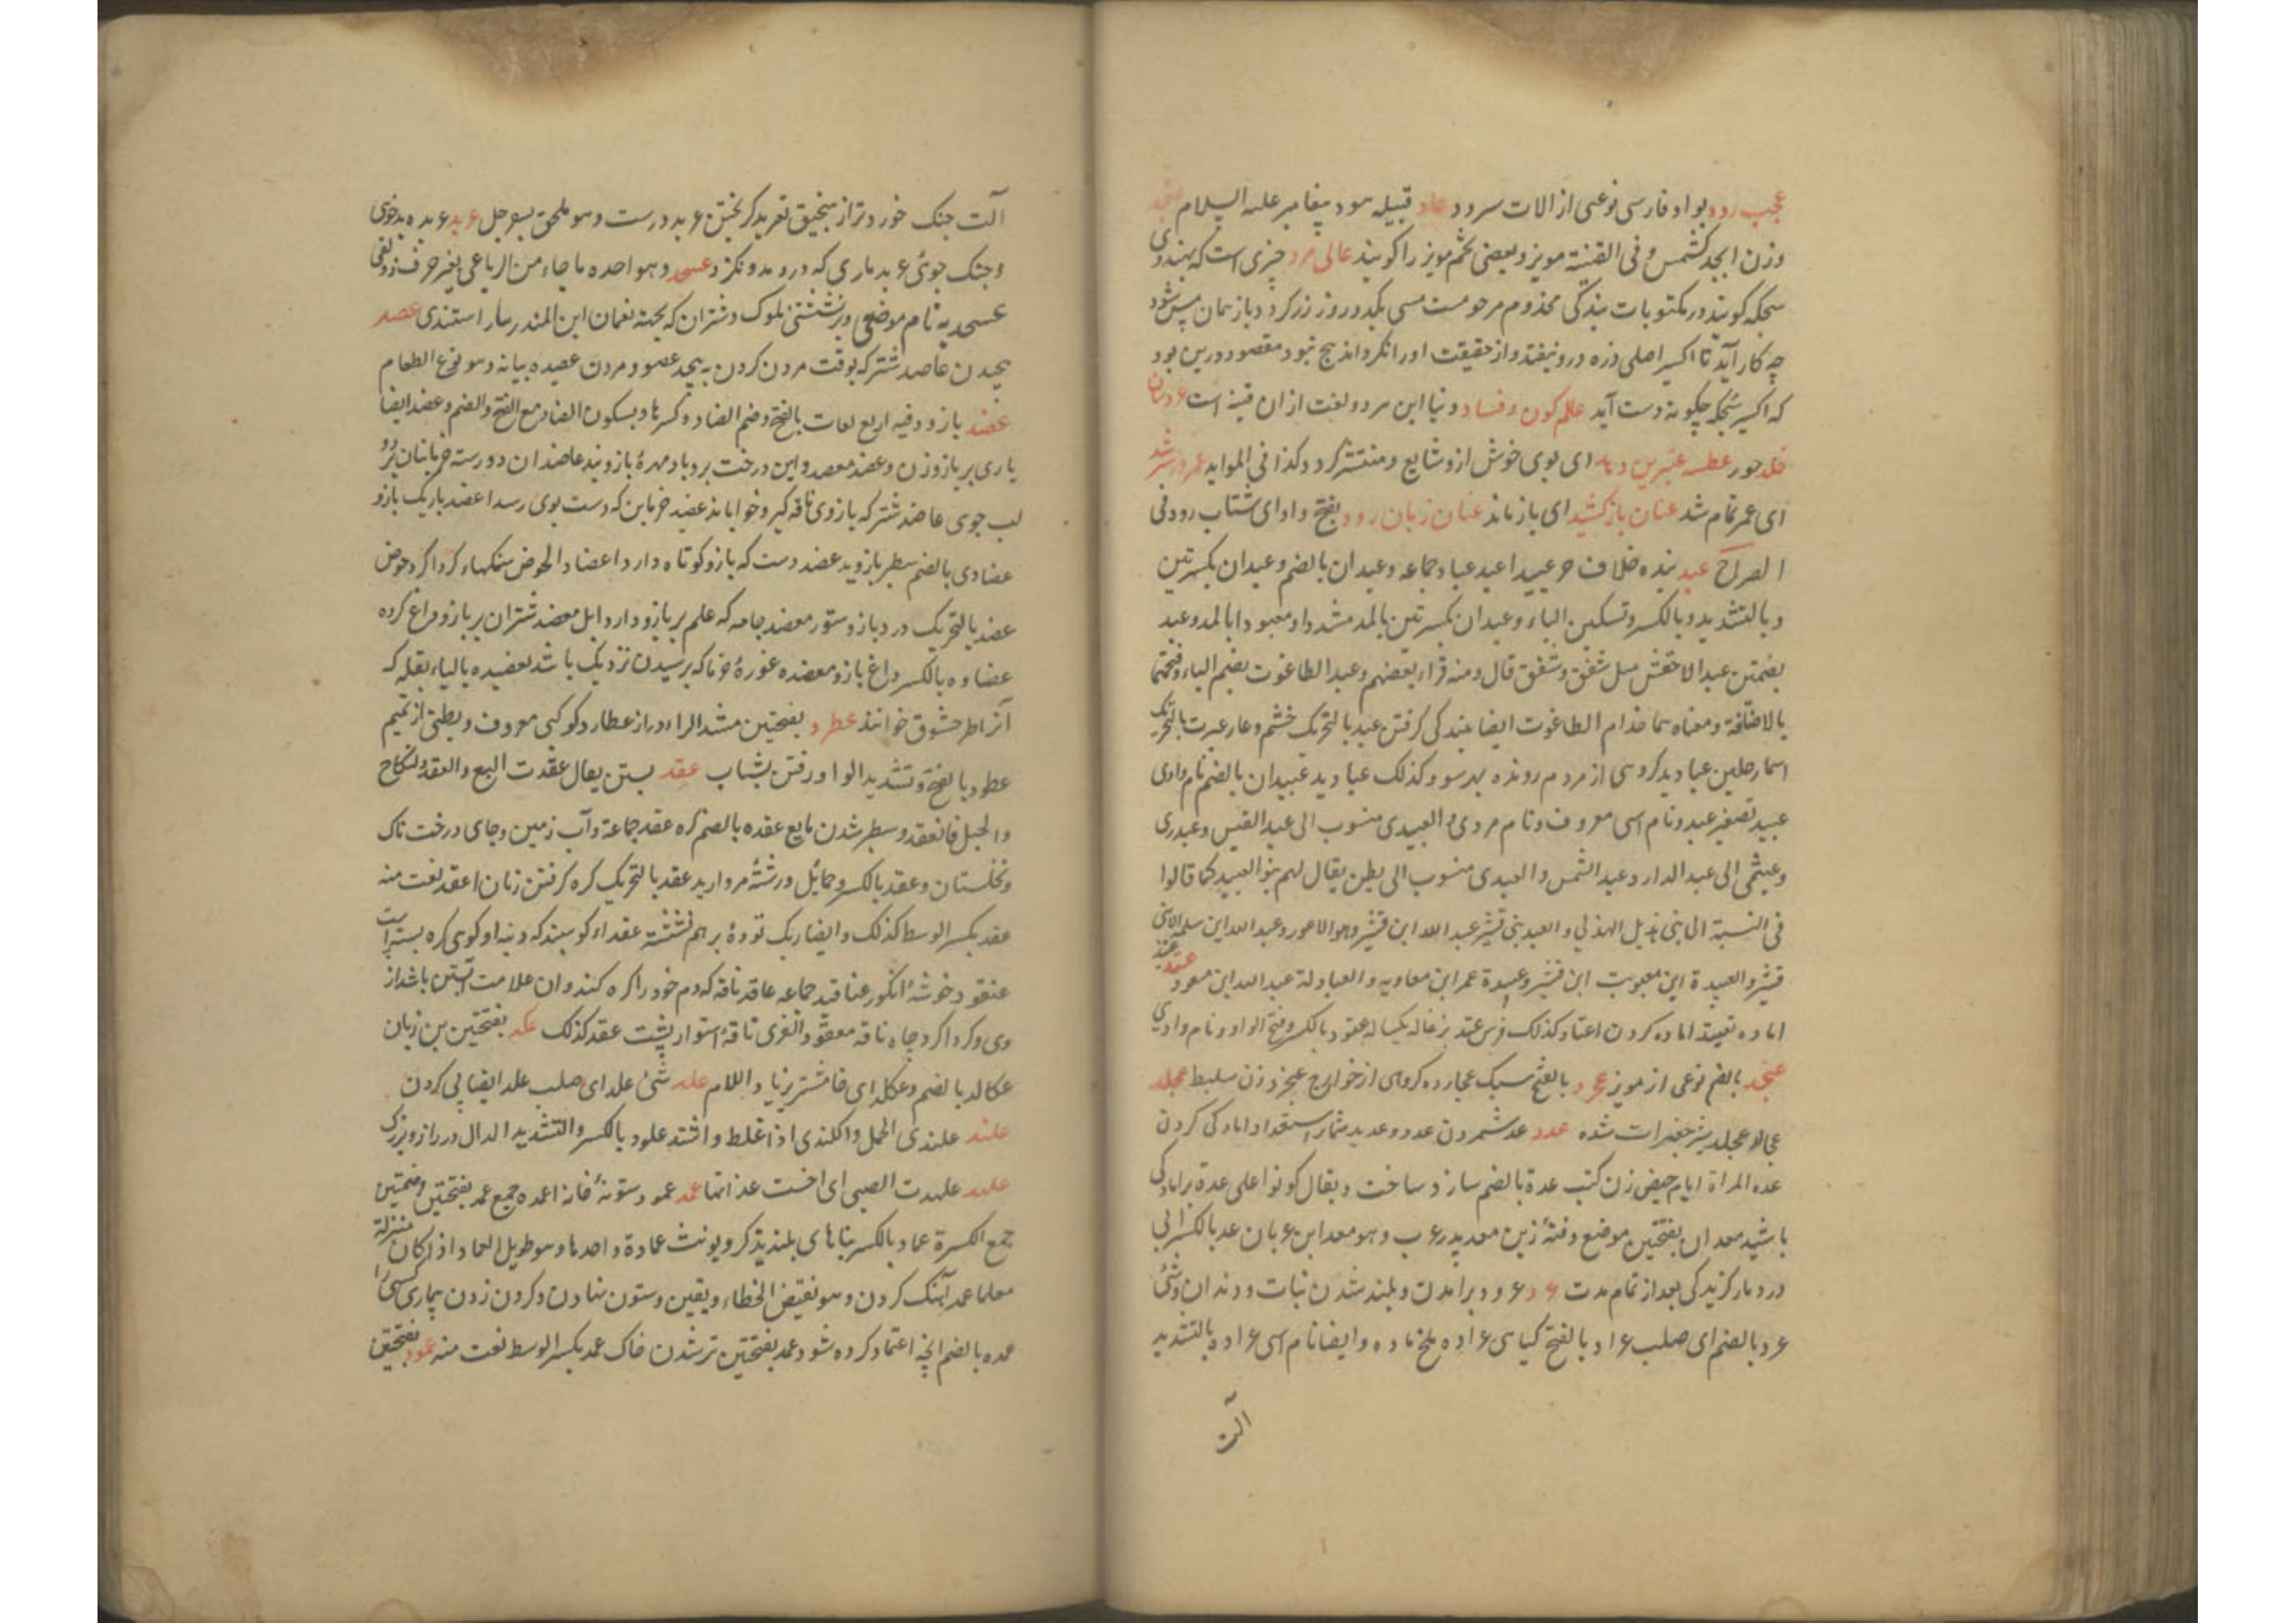 عجب رود بواو فارسی نوعی از الات سرود عاد قبیله هود پیغامبر علیه السلام عنجد
وزن ابجد کشمس و فی القنیة مویز و بعضی تخم مویز را کویند عالی مرد چیزی است که بهندوی
کویند در مکتوبات بندکی مخدوم مرحومست مسی یکدو روز زر کرد و باز همان مس شود
چه کار آید تا اکسیر اصلی ذره درو نیفتد و از حقیقت او را نکرداند هیچ نبود مقصود درین بود
که اکسیر چکونه دست آید علم کون و فساد دنیا این هر دو لغت از ان قنیه است
خلد حور عطسه عنبرین دهد ای بوی خوش ازو شایع و منتشر کردد کذا فی الموایه عمر بر شد
ای عمر تمام شد عنان باز کشید ای باز ماند عنان زبان رود بفتح واو ای شتاب رود فی
الصراح عبد بنده خلاف حر عبید اعبد عباد جماعه و عبدان بالضم و عبدان بکسرتین
و بالتشدید و بالکسر و تسکین الباء و عبدان بکسرتین بالمد مشددا و معبودا بالمد و عبد
بضمتین عبد الاخفش مثل سقف و سقف قال و منه قراء بعضهم و عبد الطاغوت بضم الباء و فتحتها
بالاضافة و معناه خدام الطاغوت ایضا بندکی کرفتن عبد بالتحریک خشم و عار عبدت بالتحریک
اسما رجلین عبادید کروهی از مردم رونده بهر سو و کذلک عبادید عبیدان بالضم نام وادی
عبید تصغیر عبد و نام اسپی معروف و نام مردی العبیدی منسوب الی عبد القیس و عبدری
و عبشمی الی عبد الدار و عبد الشمس و العبدی منسوب الی بطن یقال لهم بنو العبید کما قالوا
فی النسبة الی بنی هذیل الهذلی و العبد بنی قشیر عبد الله ابن قشیر و هو الاعور و عبد الله ابن سلمه
قشیر و العبیدة ابن معویه ابن قشیر و عبیدة عمر ابن معاویه و العبادلة عبد الله ابن مسعود عتد
اماده تعتید اماده کردن اعتاد کذلک فرس عتد بزغاله یکساله عتود بالکسر و فتح الواو و نام وادی
عنجد بالضم نوعی از مویز عجرد بالفتح سبک عجارده کروهی از خوارج عنجرد زن سلیط عجلد
عجالد عجلد شیر جغرات شده عدد عد شمردن عدد و عدید شمار استعداد امادکی کردن
عده المراة ایام حیض زن کتب عدة بالضم ساز و ساخت و یقال کونوا علی عدة بر امادکی
باشید معدان بفتحتین موضع دفتهٔ زین معد پدر عرب و هو معد ابن عدنان عد بالکسر ابی
درد مار کزیدکی بعد از تمام مدت عرد عرود برامدن و بلند شدن نبات و دندان و شئ
عرد بالضم ای صلب عراد بالفتح کیاهی عراده ملخ ماده و ایضا نام اسپی عراده بالتشدید
الت
آلت جنک خوردتر از منجنیق تعرید کریختن عربد درست و هو ملحق بسجل عربد عربده بدخوی
و جنک جوئی عربد ماری که درو مدو نکزد عسجد و هو احد ما جاء من الرباعی بغیر حرف ذولقی
عسجدیه نام موضعی و برنشستنی ملوک و شتران که بجهة نعمان ابن المنذر استندی عصد
پیچیدن عاصد شتر که بوقت مردن کردن به پیچد عصود مردن عصیده بیانه و هو نوع الطعام
عضد بازو و فیه اربع لغات بالفتح و ضم الضاد و کسرها و بسکون الضاد مع الفتح و الضم و عضد ایضا
یاری بر بازو زدن و عضد معضد و این درخت برو باد مهرهٔ بازوبند عاضدان دو رسته خرمابنان بر دو
لب جوی عاضد شتر که بازوی ناقه کیرد و خواباند عضید خرمابن که دست بوی رسد اعضد باریک بازو
عضادی بالضم سطبر بازو ید عضد دست که بازو کوتاه دارد اعضاد الحوض سنکهاء کرد اکرد حوض
عضد بالتحریک درد بازو ستور معضد جامه که علم بر بازو دارد ابل معضد شتران بر بازو داغ کرده
عضاده بالکسر داغ بازو معضده غورهٔ خرما که برسیدن نزدیک باشد یعضیده بالیاء بقله که
آنرا طرحشوق خوانند عطرد بفتحتین مشد الراء دراز عطارد کوکبی معروف و بطنی از تمیم
عطود بالفتح و تشدید الواو رفتن بشتاب عقد بستن یقال عقدت البیع و العقد و النکاح
و الحبل فانعقد و سطبر شدن مایع عقده بالضم کره عقد جماعة و آب زمین و جای درخت ناک
و نخلستان و عقد بالکسر و حمایل و رشتهٔ مروارید عقد بالتحریک کره کرفتن زبان اعقد نعت منه
عقد بکسر الوسط کذلک و ایضا ریک تودهٔ بر هم نشسته عقداء کوسبند که دنبه او کوی کره بسته است
عنقود خوشهٔ انکور عناقید جماعه عاقد ناقه که دم خود را کره کند و ان علامت آبستن باشد از
وی و کرد اکرد چاه ناقه معقود القری ناقهٔ استوار پشت عقد کذلک عکد بفتحتین بن زبان
عکالد بالضم و عکلد ای خاثر بزیاد اللام علد شئ علد ای صلب علد ایضا پی کردن
علند علندی الجمل و اکلندی اذا غلظ و اشتد علود بالکسر و التشدید الدال دراز و بزرک
علهد علهدت الصبی ای احسنت غذاءها عمد عمود ستونهٔ خانه اعمده جمع عمد بفتحتین و ضمتین
جمع الکسرة عماد بالکسر بناهای بلند یذکر و یونث عمادة واحدها و هو طویل العماد اذا کان منزله
معلما عمد آهنک کردن و هو نقیض الخطاء و یقین و ستون نهادن و کردن زدن بیماری کسی را
عمده بالضم انچه اعتماد کرده شود عمد بفتحتین تر شدن خاک عمد بکسر الوسط نعت منه عمود بفتحتین